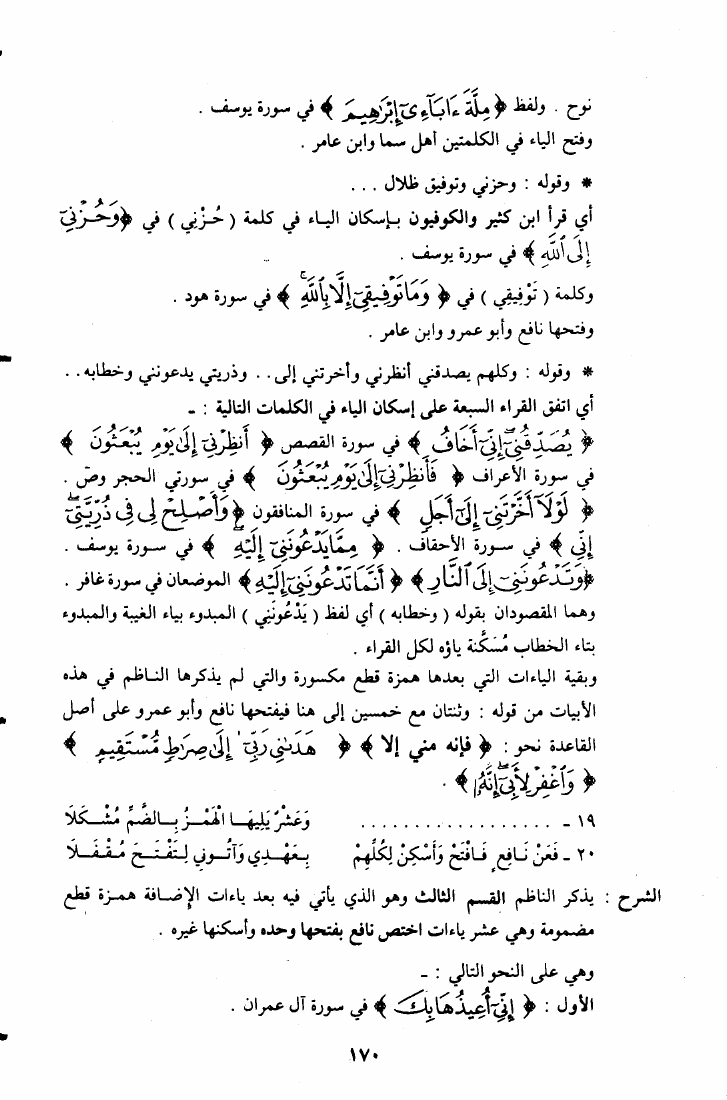 نوح . ولفظ ﴿ مِلَّةَ ءَابَآءِىٓ إِبْرَٰهِيمَ ﴾ في سورة يوسف .
وفتح الياء في الكلمتين أهل سما وابن عامر .
* وقوله : وحزني وتوفيق ظلال . . .
أي قرأ ابن كثير والكوفيون بإسكان الياء في كلمة ( حُزْنِي ) في ﴿ وَحُزْنِىٓ
إِلَى ٱللَّهِ ﴾ في سورة يوسف .
وكلمة ( تَوْفِيقِي ) في ﴿ وَمَا تَوْفِيقِىٓ إِلَّا بِٱللَّهِ ۚ ﴾ في سورة هود .
وفتحها نافع وأبو عمرو وابن عامر .
* وقوله : وكلهم يصدقني أنظرني وأخرتني إلى . . وذريتي يدعونني وخطابه . .
أي اتفق القراء السبعة على إسكان الياء في الكلمات التالية : ـ
﴿ يُصَدِّقُنِىٓ ۖ إِنِّىٓ أَخَافُ ﴾ في سورة القصص ﴿ أَنظِرْنِىٓ إِلَىٰ يَوْمِ يُبْعَثُونَ ﴾
في سورة الأعراف ﴿ فَأَنظِرْنِىٓ إِلَىٰ يَوْمِ يُبْعَثُونَ ﴾ في سورتي الحجر وصۤ .
﴿ لَوْلَآ أَخَّرْتَنِىٓ إِلَىٰٓ أَجَلٍ ﴾ في سورة المنافقون ﴿ وَأَصْلِحْ لِى فِى ذُرِّيَّتِىٓ ۖ
إِنِّى ﴾ في سورة الأحقاف . ﴿ مِمَّا يَدْعُونَنِىٓ إِلَيْهِ ۖ ﴾ في سورة يوسف .
﴿ وَتَدْعُونَنِىٓ إِلَى ٱلنَّارِ ﴾ ﴿ أَنَّمَا تَدْعُونَنِىٓ إِلَيْهِ ﴾ الموضعان في سورة غافر .
وهما المقصودان بقوله ( وخطابه ) أي لفظ ( يَدْعُونَنِي ) المبدوء بياء الغيبة والمبدوء
بتاء الخطاب مُسَكَّنة ياؤه لكل القراء .
وبقية الياءات التي بعدها همزة قطع مكسورة والتي لم يذكرها الناظم في هذه
الأبيات من قوله : وثنتان مع خمسين إلى هنا فيفتحها نافع وأبو عمرو على أصل
القاعدة نحو : ﴿ فإنه مني إلا ﴾ ﴿ هَدَىٰنِى رَبِّىٓ إِلَىٰ صِرَٰطٍ مُّسْتَقِيمٍ ﴾
﴿ وَٱغْفِرْ لِأَبِىٓ إِنَّهُۥ ﴾ .
١٩ ـ . . . . . . . . . . . . . . . . . . وَعَشْرٌ يَلِيهَا الْهَمْزُ بِالضَّمِّ مُشْكَلَا
٢٠ ـ فَعَنْ نَافِعٍ فَافْتَحْ وَأَسْكِنْ لِكُلِّهِمْ بِعَهْدِي وَآتُونِي لِتَفْتَحَ مُقْفَلَا
الشرح : يذكر الناظم القسم الثالث وهو الذي يأتي فيه بعد ياءات الإضافة همزة قطع
مضمومة وهي عشر ياءات اختص نافع بفتحها وحده وأسكنها غيره .
وهي على النحو التالي : ـ
الأول : ﴿ إِنِّىٓ أُعِيذُهَا بِكَ ﴾ في سورة آل عمران .
١٧٠